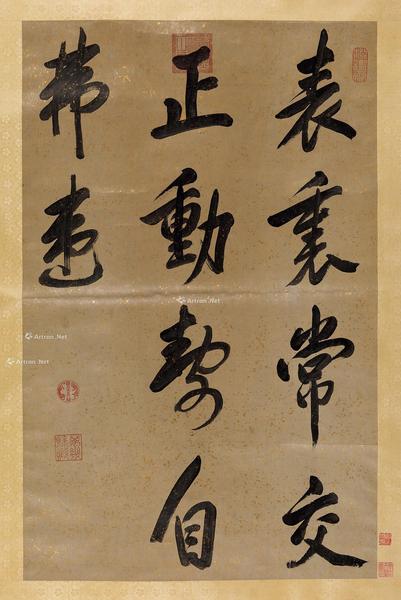 表裏常交
正動靜自
弗違
Artron.Net
Artron.Net
Artron.Net